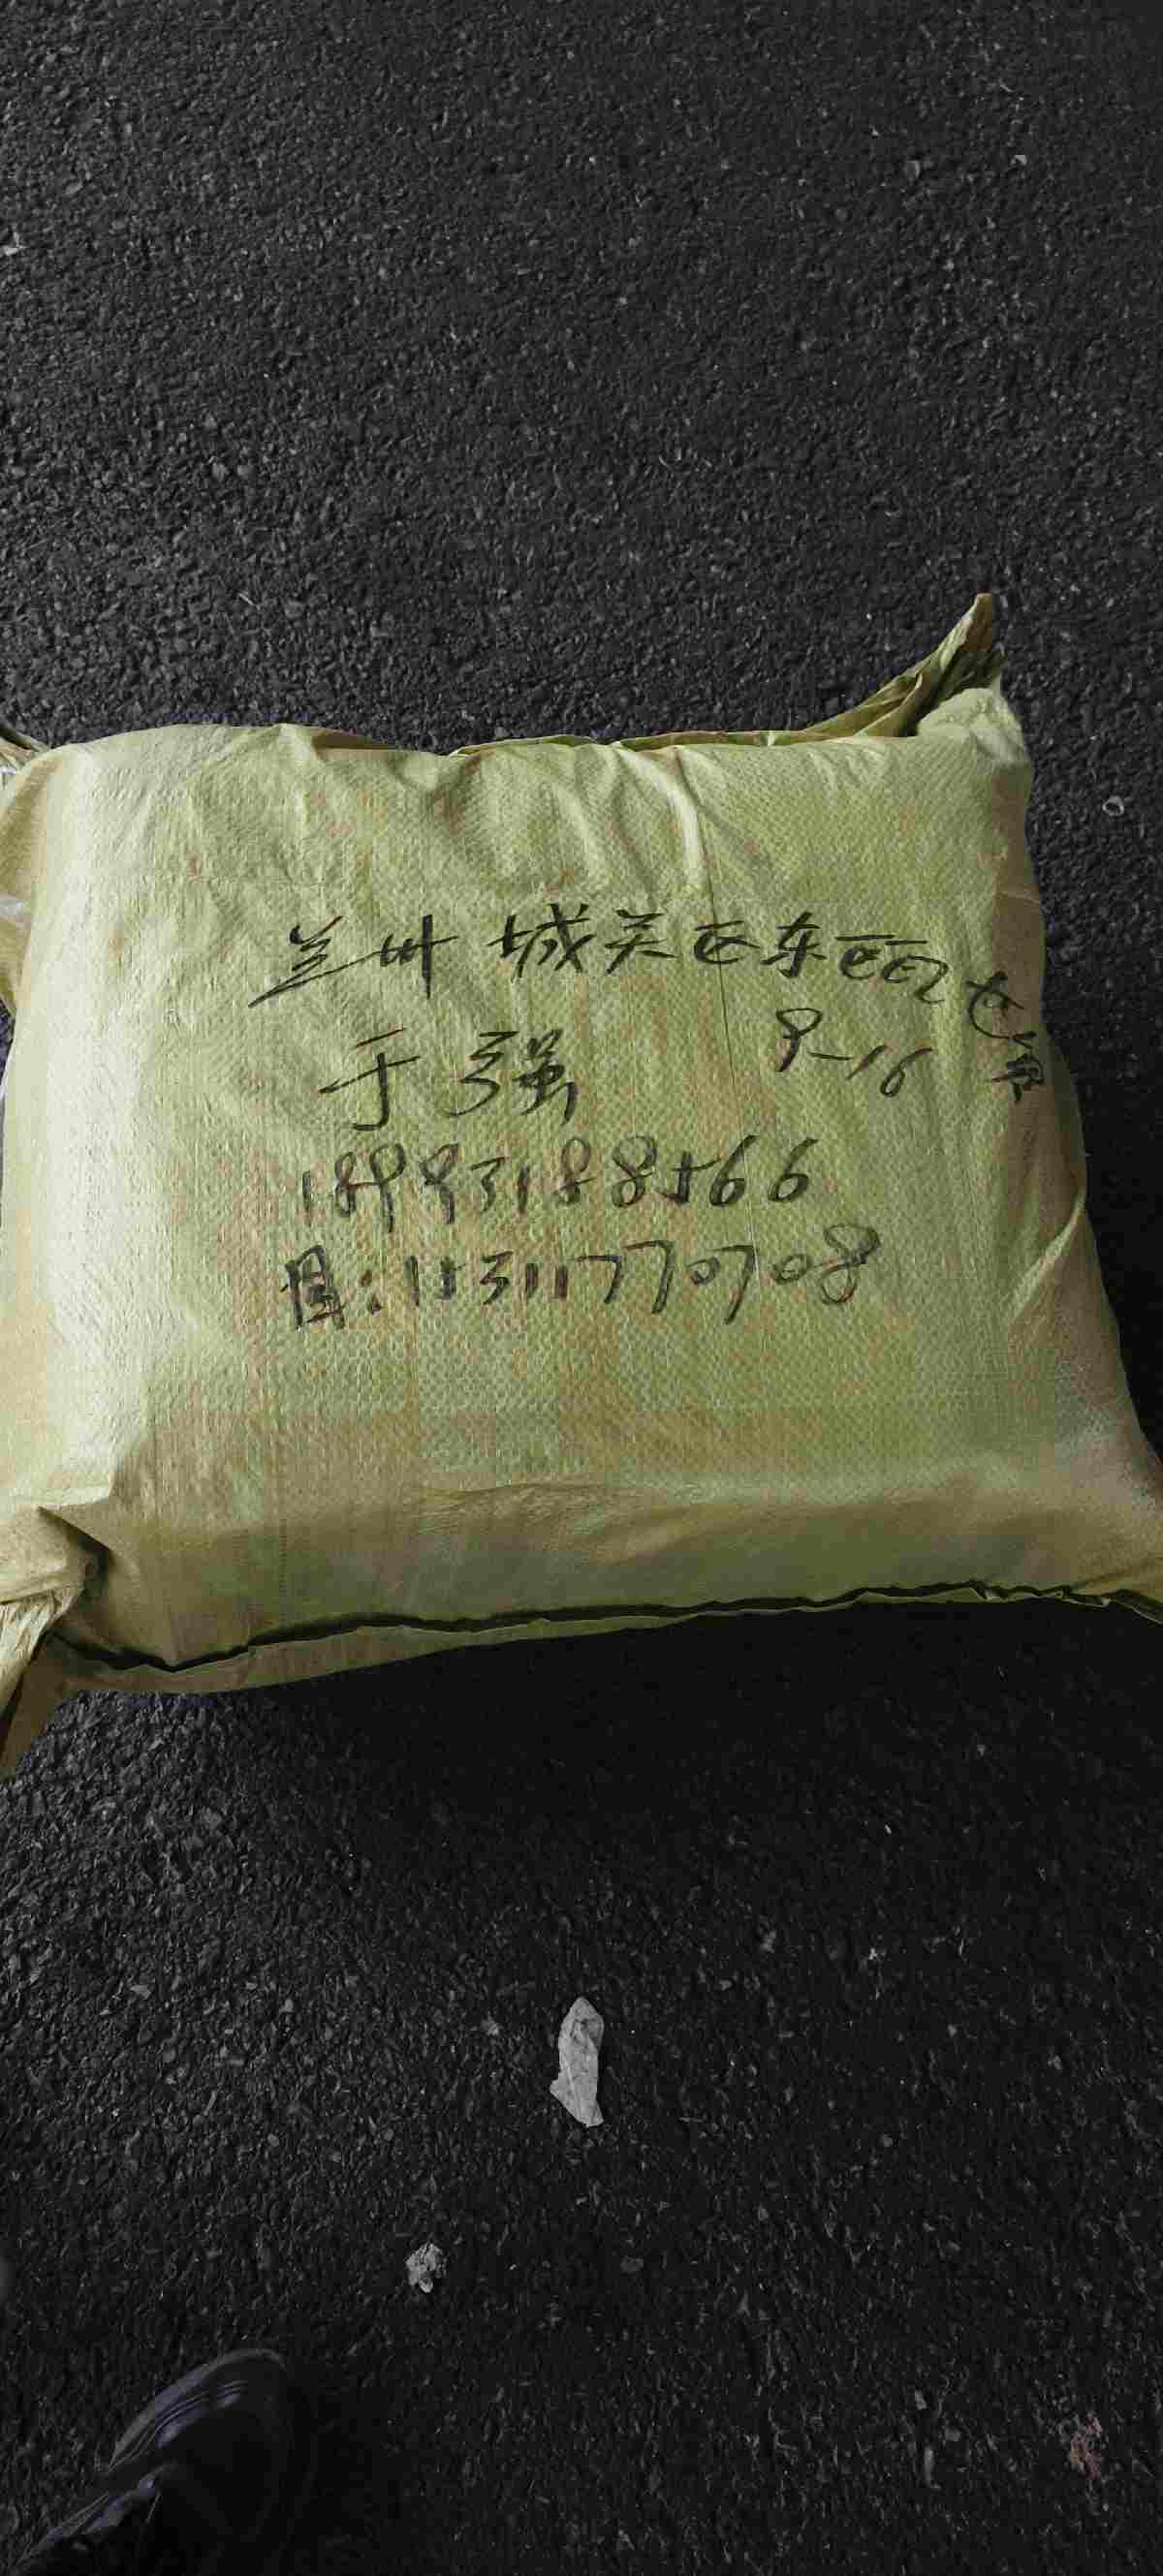 兰州 城关区东部女装
于强 9-16
18993188566
国:15311770708